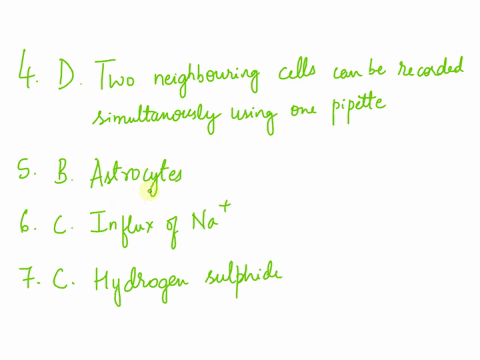 4. D. Two neighbouring cells can be recorded
simultanously using one pipette
5. B. Astrocytes
6. C. Influx of Na⁺
7. C. Hydrogen sulphide